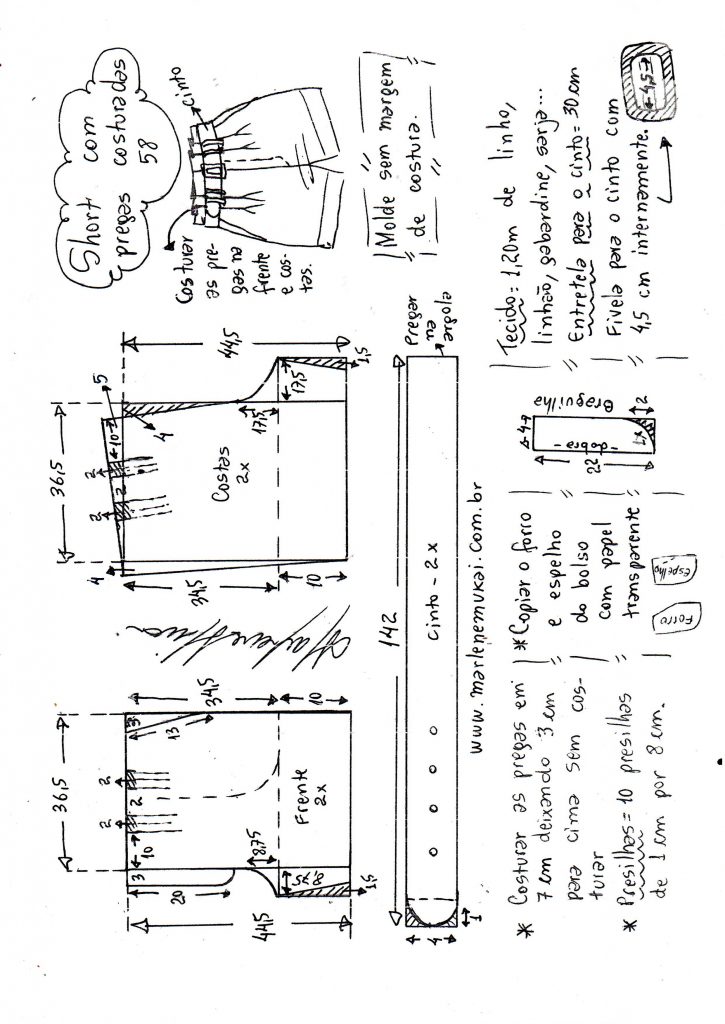 Short com
pregas costuradas
58
cinto
Costurar
as pre-
gas na
frente
e cos-
tas.
Molde sem margem
de costura.
36,5
5
10
4
2
2
2
4
44,5
34,5
10
Costas
2x
17,5
17,5
1,5
36,5
3
10
2
2
2
3
13
20
44,5
34,5
10
8,75
8,75
1,5
Frente
2x
142
Pregar
na
argola
cinto - 2x
4
1
www.marlenemukai.com.br
* Costurar as pregas em
7 cm deixando 3 cm
para cima sem cos-
turar
* Presilhas = 10 presilhas
de 1 cm por 8 cm.
* Copiar o forro
e espelho
do bolso
com papel
transparente
Forro
Espelho
4
22
-dobra-
2
Braguilha
Tecido = 1,20m de linho,
linhão, gabardine, sarja...
Entretela para o cinto = 30 cm
Fivela para o cinto com
4,5 cm internamente.
4,5